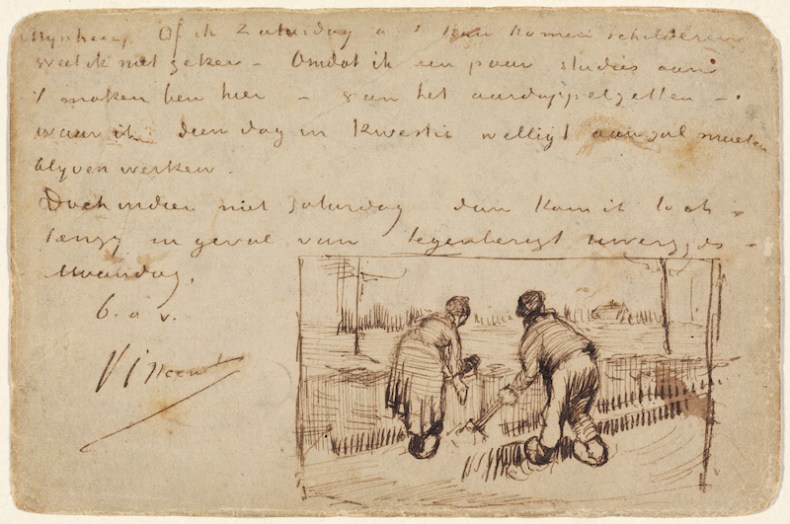 Mynheer, Of ik Zaturdag a s kan komen schilderen
weet ik niet zeker – Omdat ik een paar studies aan
't maken ben hier – van het aardappelzetten –
waar ik dien dag in kwestie welligt aan zal moeten
blyven werken.
Doch indien niet Zaturdag dan kom ik toch
in geval van tegenberigt uwerzyds –
Maandag.
b. a v.
Vincent